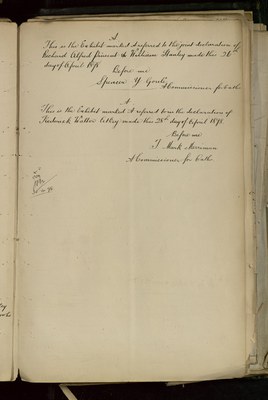 A
This is the Exhibit marked A referred to the joint declaration of
Richard Alfred & William Stanley made this 26th
day of April 1878
Before me
Spencer Y
A Commissioner for Oaths
A
This is the Exhibit marked A referred to in the declaration of
Frederick Walter made this 28th day of April 1878
Before me
J Mark
A Commissioner for Oaths